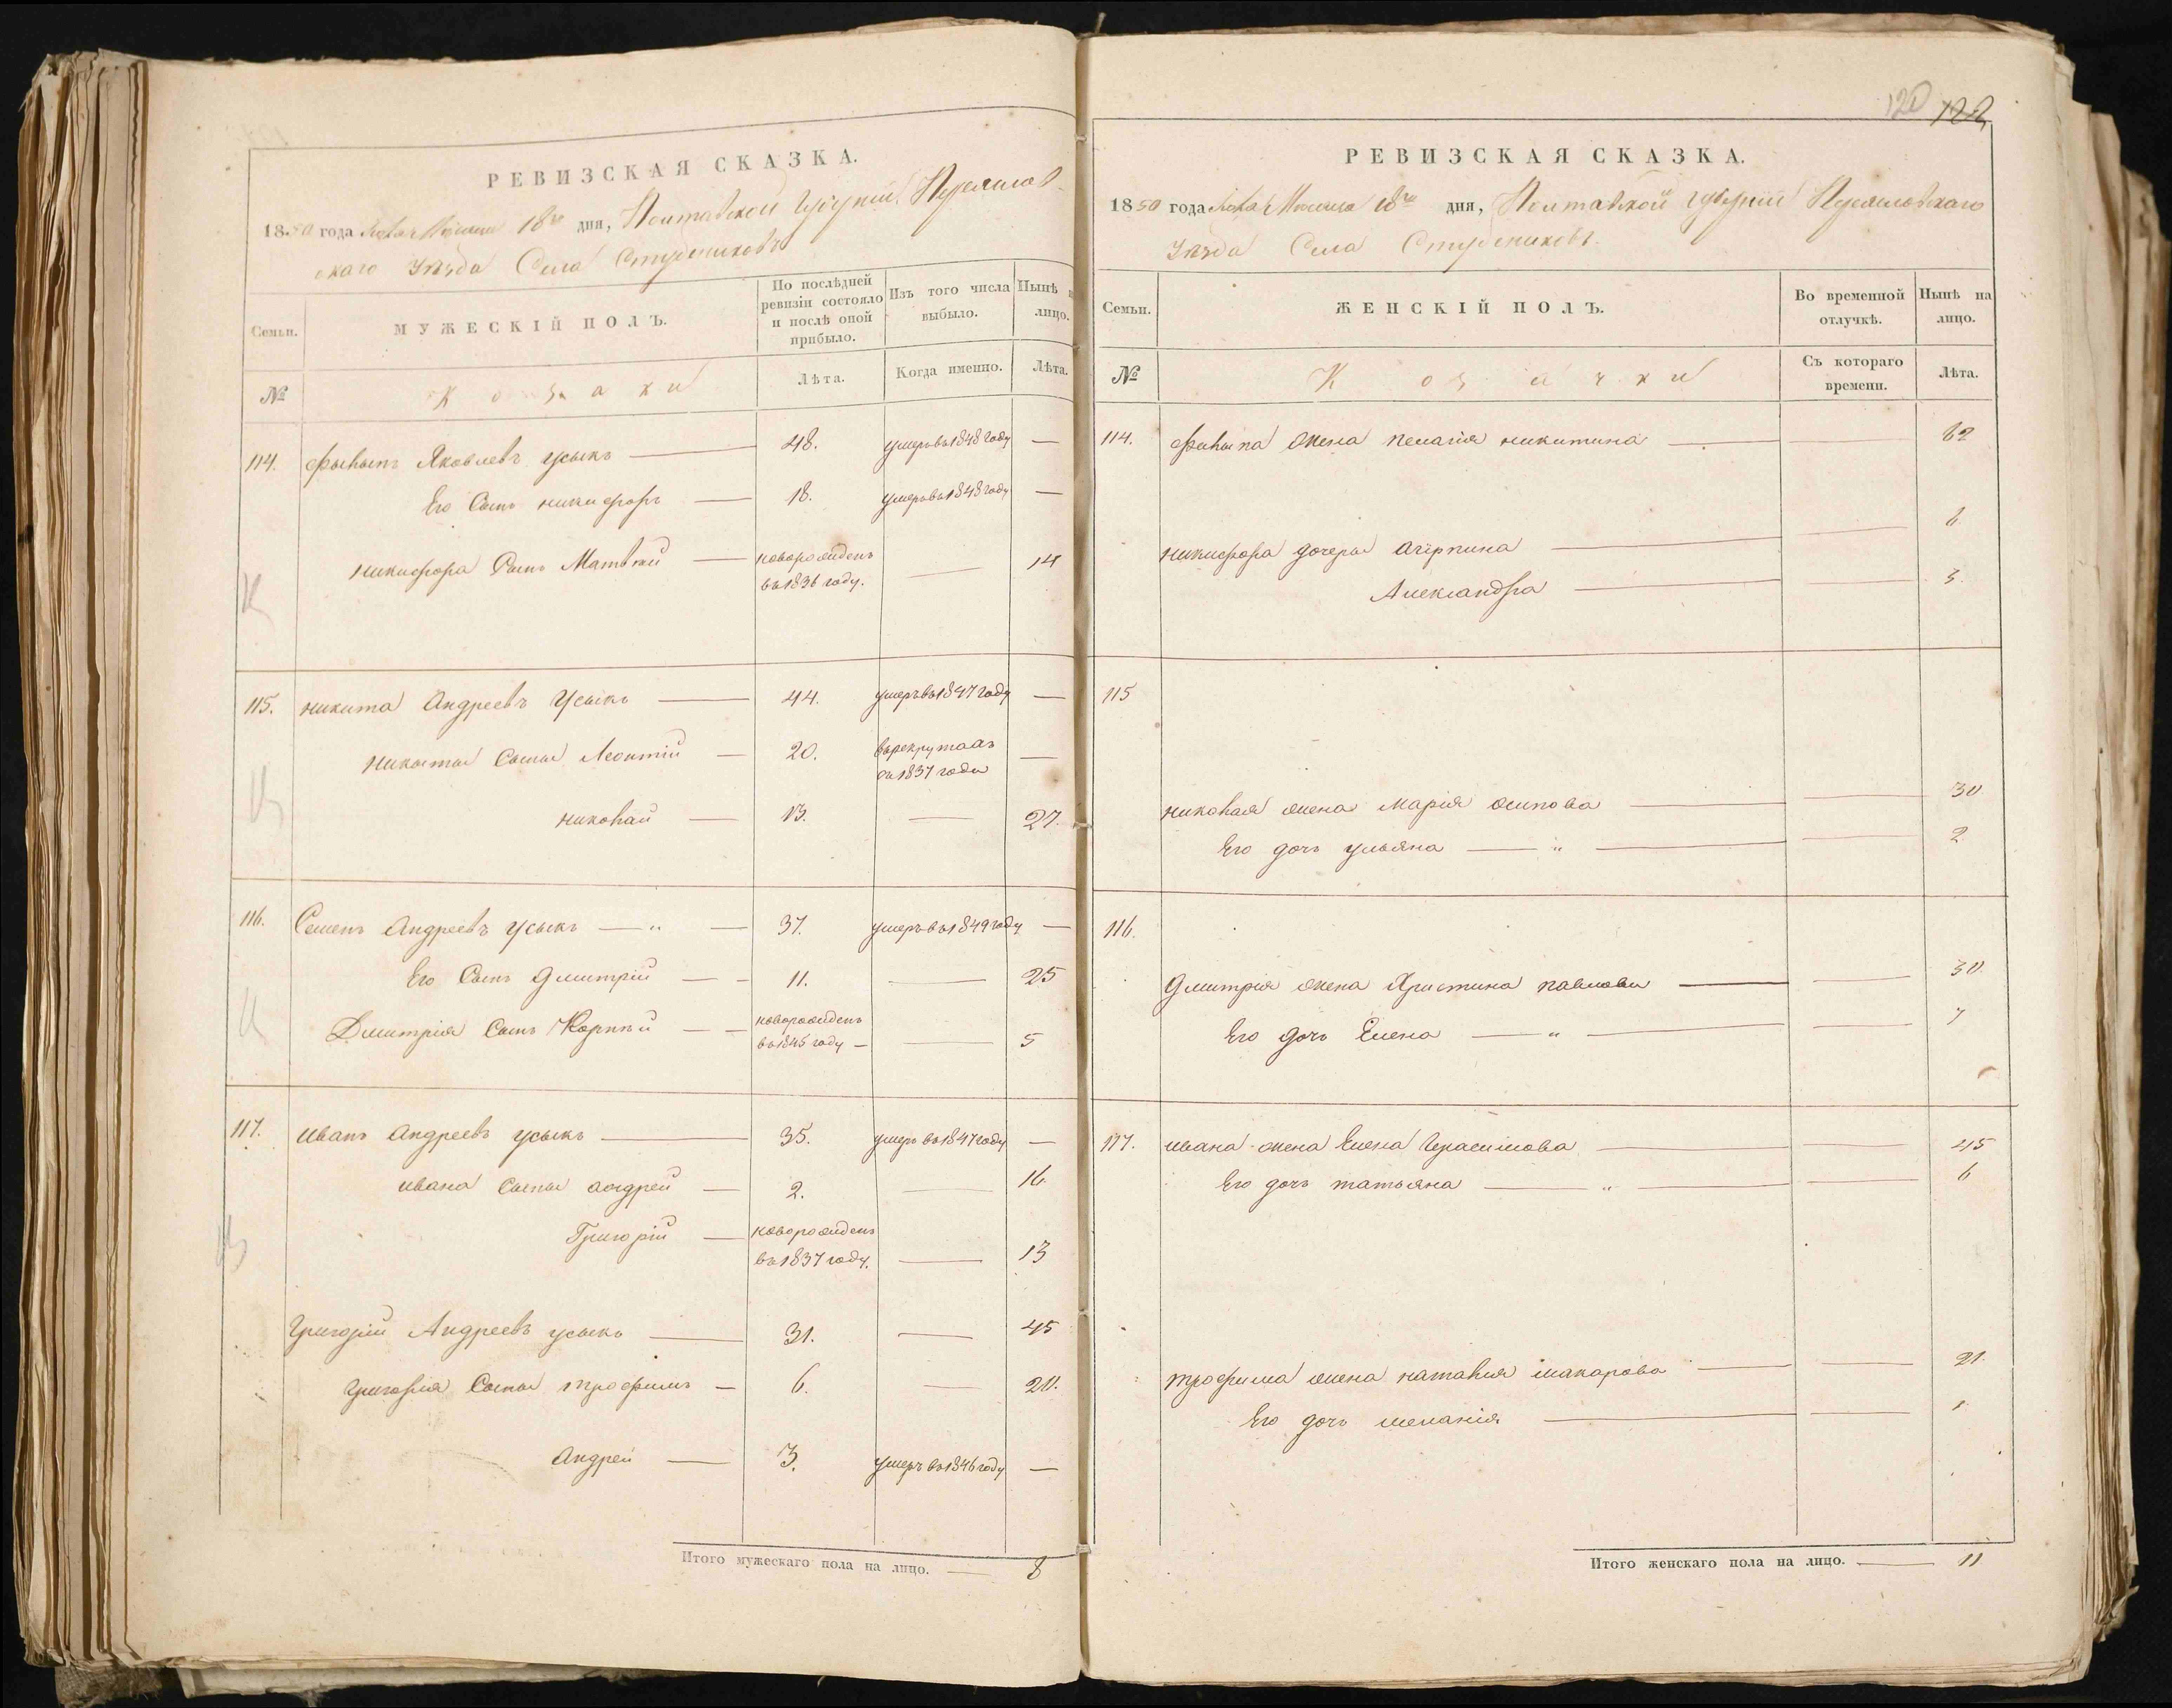 РЕВИЗСКАЯ СКАЗКА.
1850 года Месяца 18го дня, Полтавской Губерніи Переяслов-
скаго Уѣзда Села Студениковъ
Семьи.
МУЖЕСКІЙ ПОЛЪ.
По послѣдней ревизіи состояло и послѣ оной прибыло.
Изъ того числа выбыло.
Нынѣ на лицо.
№
Козаки
Лѣта.
Когда именно.
Лѣта.
114. Филипъ Яковлевъ Усыкъ — 48. умеръ въ 1848 году —
Его Сынъ никифоръ — 18. умеръ въ 1848 году —
никифора Сынъ Матвѣй — новорожденъ — 14
въ 1836 году.
115. никита Андреевъ Усыкъ — 44. умеръ въ 1847 году —
никиты Сыны Леонтій — 20. въ рекрутахъ —
съ 1837 года
николай — 13. — 27.
116. Семенъ Андреевъ Усыкъ — „ — 37. умеръ въ 1849 году —
Его Сынъ Дмитрій — 11. — 25
Дмитрія Сынъ Корнѣй — новорожденъ
въ 1845 году — — 5
117. иванъ Андреевъ усыкъ — 35. умеръ въ 1847 году —
ивана Сыны андрей — 2. — 16
Григорій — новорожденъ
въ 1837 году. — 13
Григорій Андреевъ усыкъ — 31. — 45
Григорія Сыны трофимъ — 6. — 20.
Андрей — 3. умеръ въ 1846 году —
Итого мужескаго пола на лицо. — 8
120 122
РЕВИЗСКАЯ СКАЗКА.
1850 года Месяца 18го дня, Полтавской Губерніи Переясловскаго
Уѣзда Села Студениковъ.
Семьи.
ЖЕНСКІЙ ПОЛЪ.
Во временной отлучкѣ.
Нынѣ на лицо.
№
Козачки
Съ котораго времени.
Лѣта.
114. филипа жена пелагія никитина — — 62
никифора дочеры агрипина — — 6
Александра — — 3.
115
николая жена марія осипова — — 30
Его дочь ульяна — „ — — 2
116.
Дмитрія жена Христина павлова — — 30
Его дочь Елена — „ — — 7
117. ивана жена Елена Герасимова — — 45
Его дочь татьяна — „ — — 6
трофима жена наталия макарова — — 21.
Его дочь меланія — — 1
Итого женскаго пола на лицо. — 11